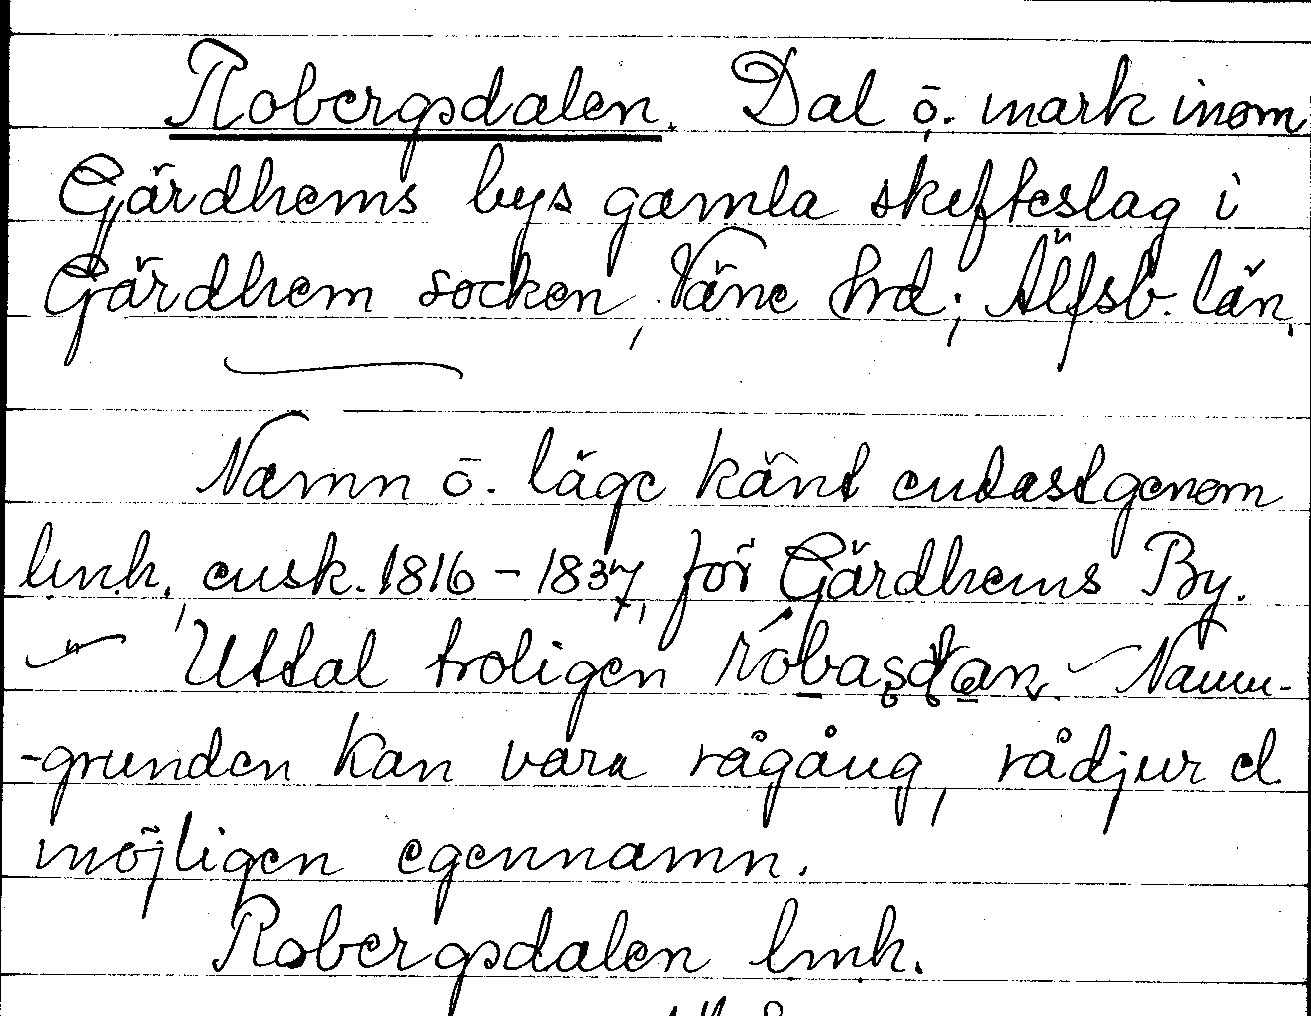 Robergsdalen. Dal ö. mark inom
Gärdhems bys gamla skefteslag i
Gärdhem socken, Väne hrd; Älfsb. län.
Namn ö. läge känt endast genom
lmk, ensk. 1816 - 1837, för Gärdhems By.
Uttal troligen Namn-
-grunden kan vara rågång, rådjur el
möjligen egennamn.
Robergsdalen lmk.